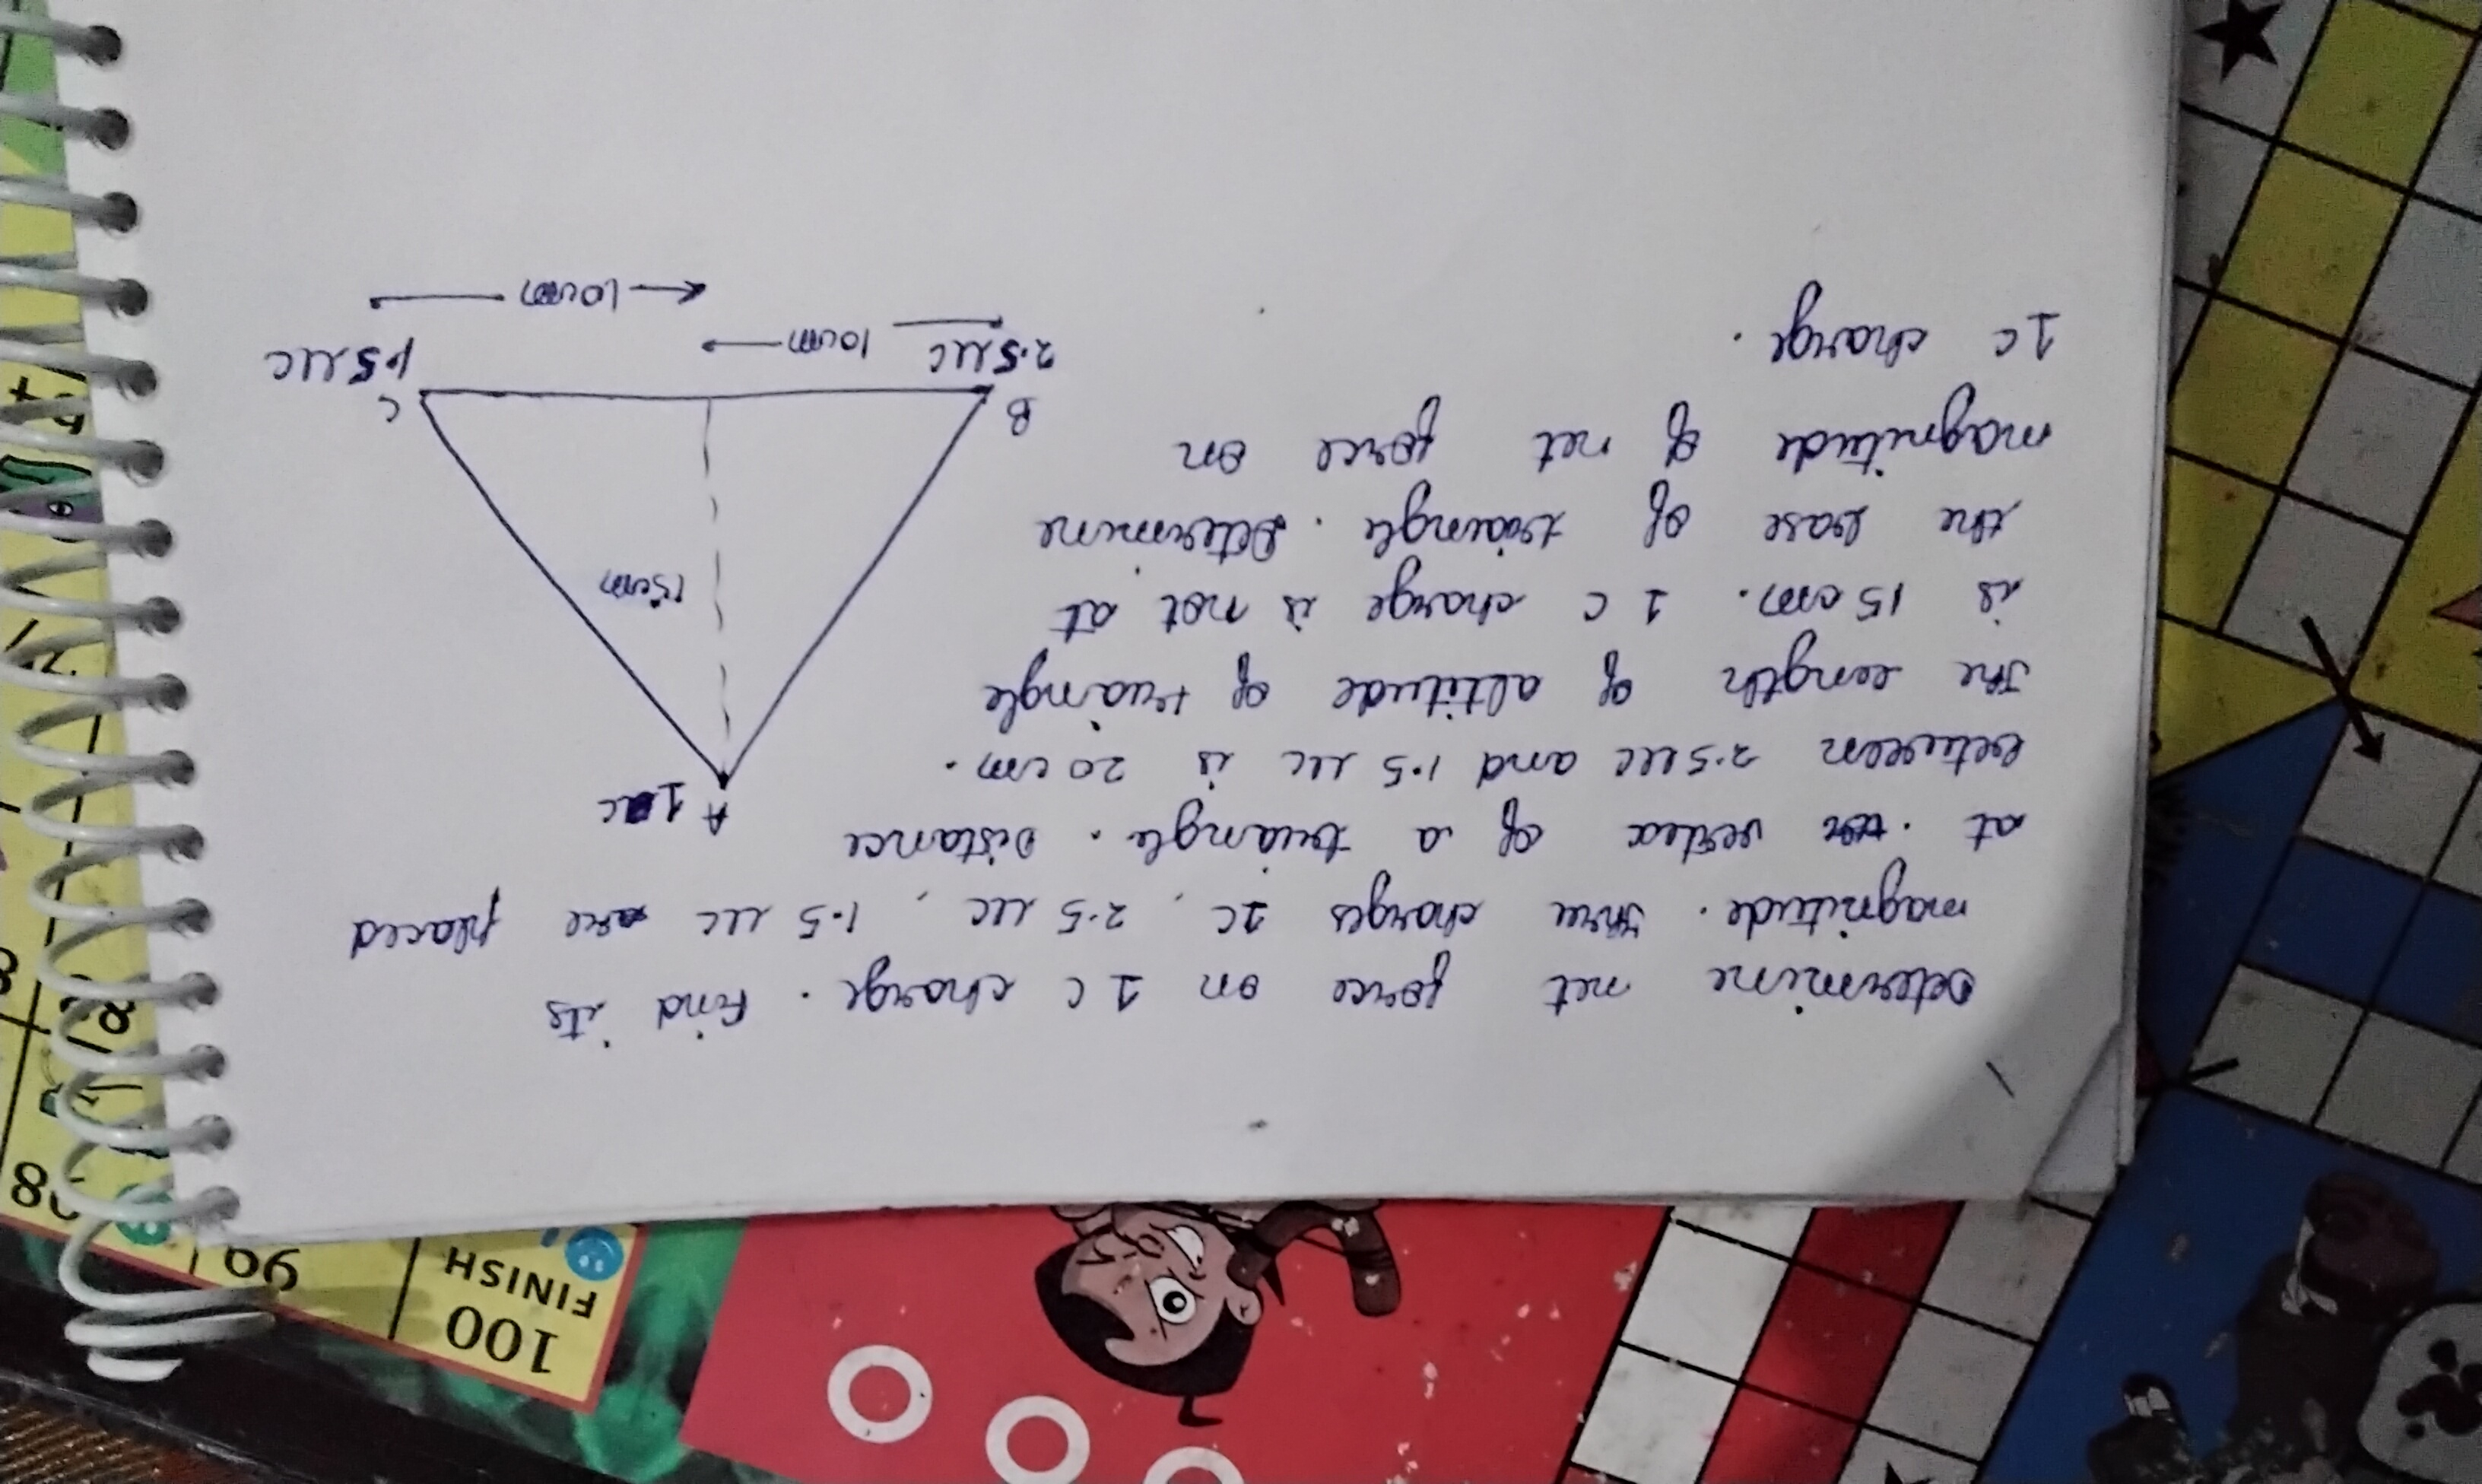 Determine net force on 1 C charge. Find its
magnitude. Three charges 1C, 2.5 μC, 1.5 μC are placed
at vertex of a triangle. Distance
between 2.5μC and 1.5 μC is 20 cm.
The length of altitude of triangle
is 15 cm. 1 C charge is not at
the base of triangle. Determine
magnitude of net force on
1C charge.
A 1C
15cm
B
C
2.5μC
1.5μC
10cm
10cm
100
FINISH
99
98